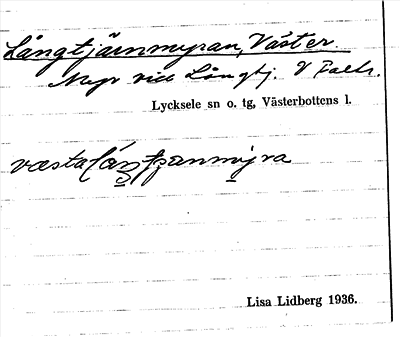 Långtjärnmyran, Väster.
Myr vid Långtj. V
Lycksele sn o. tg, Västerbottens l.
Lisa Lidberg 1936.